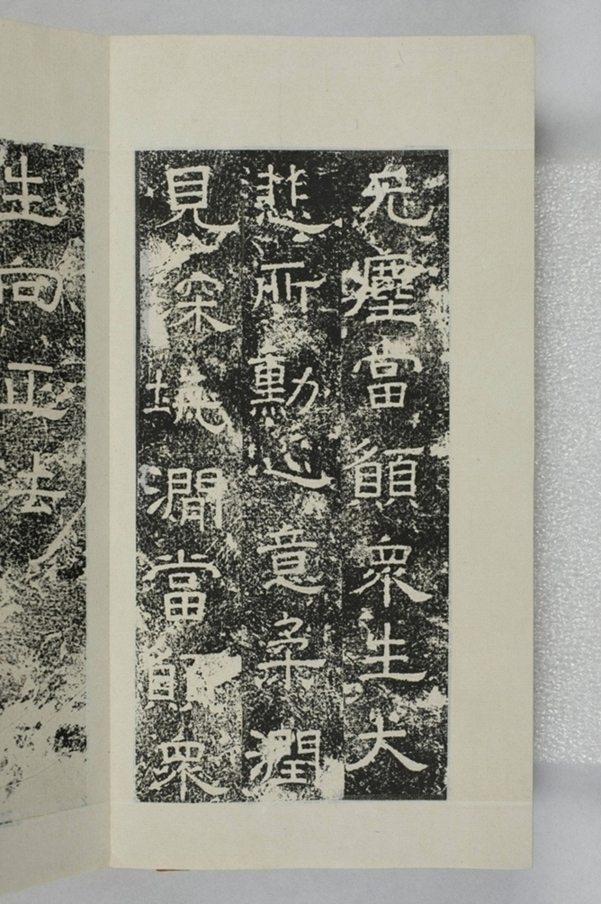 无塵當願衆生大
悲所勳心意柔潤
見深坑澗當願衆
生向正法